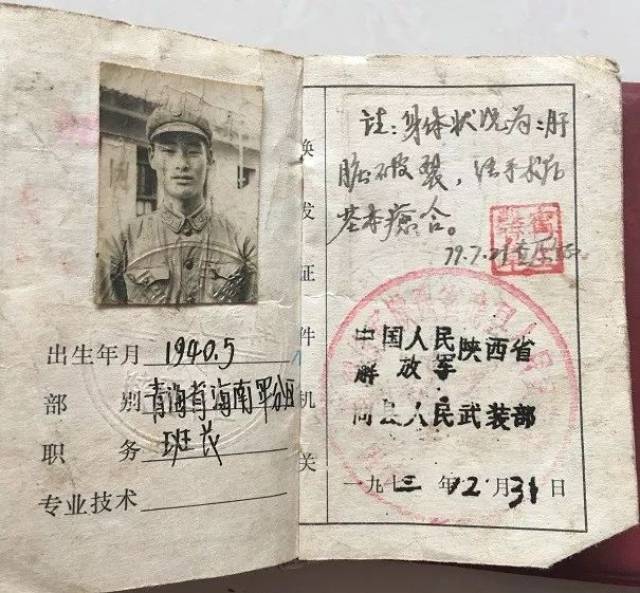 出生年月 1940.5
部别 青海省海南军分区
职务 班长
专业技术
换发证件机关
注：身体状况为：肝
胆破裂，经手术后
基本癒合。
79.7.21
中国人民
解放军陕西省
商县人民武装部
一九七三年12月31日